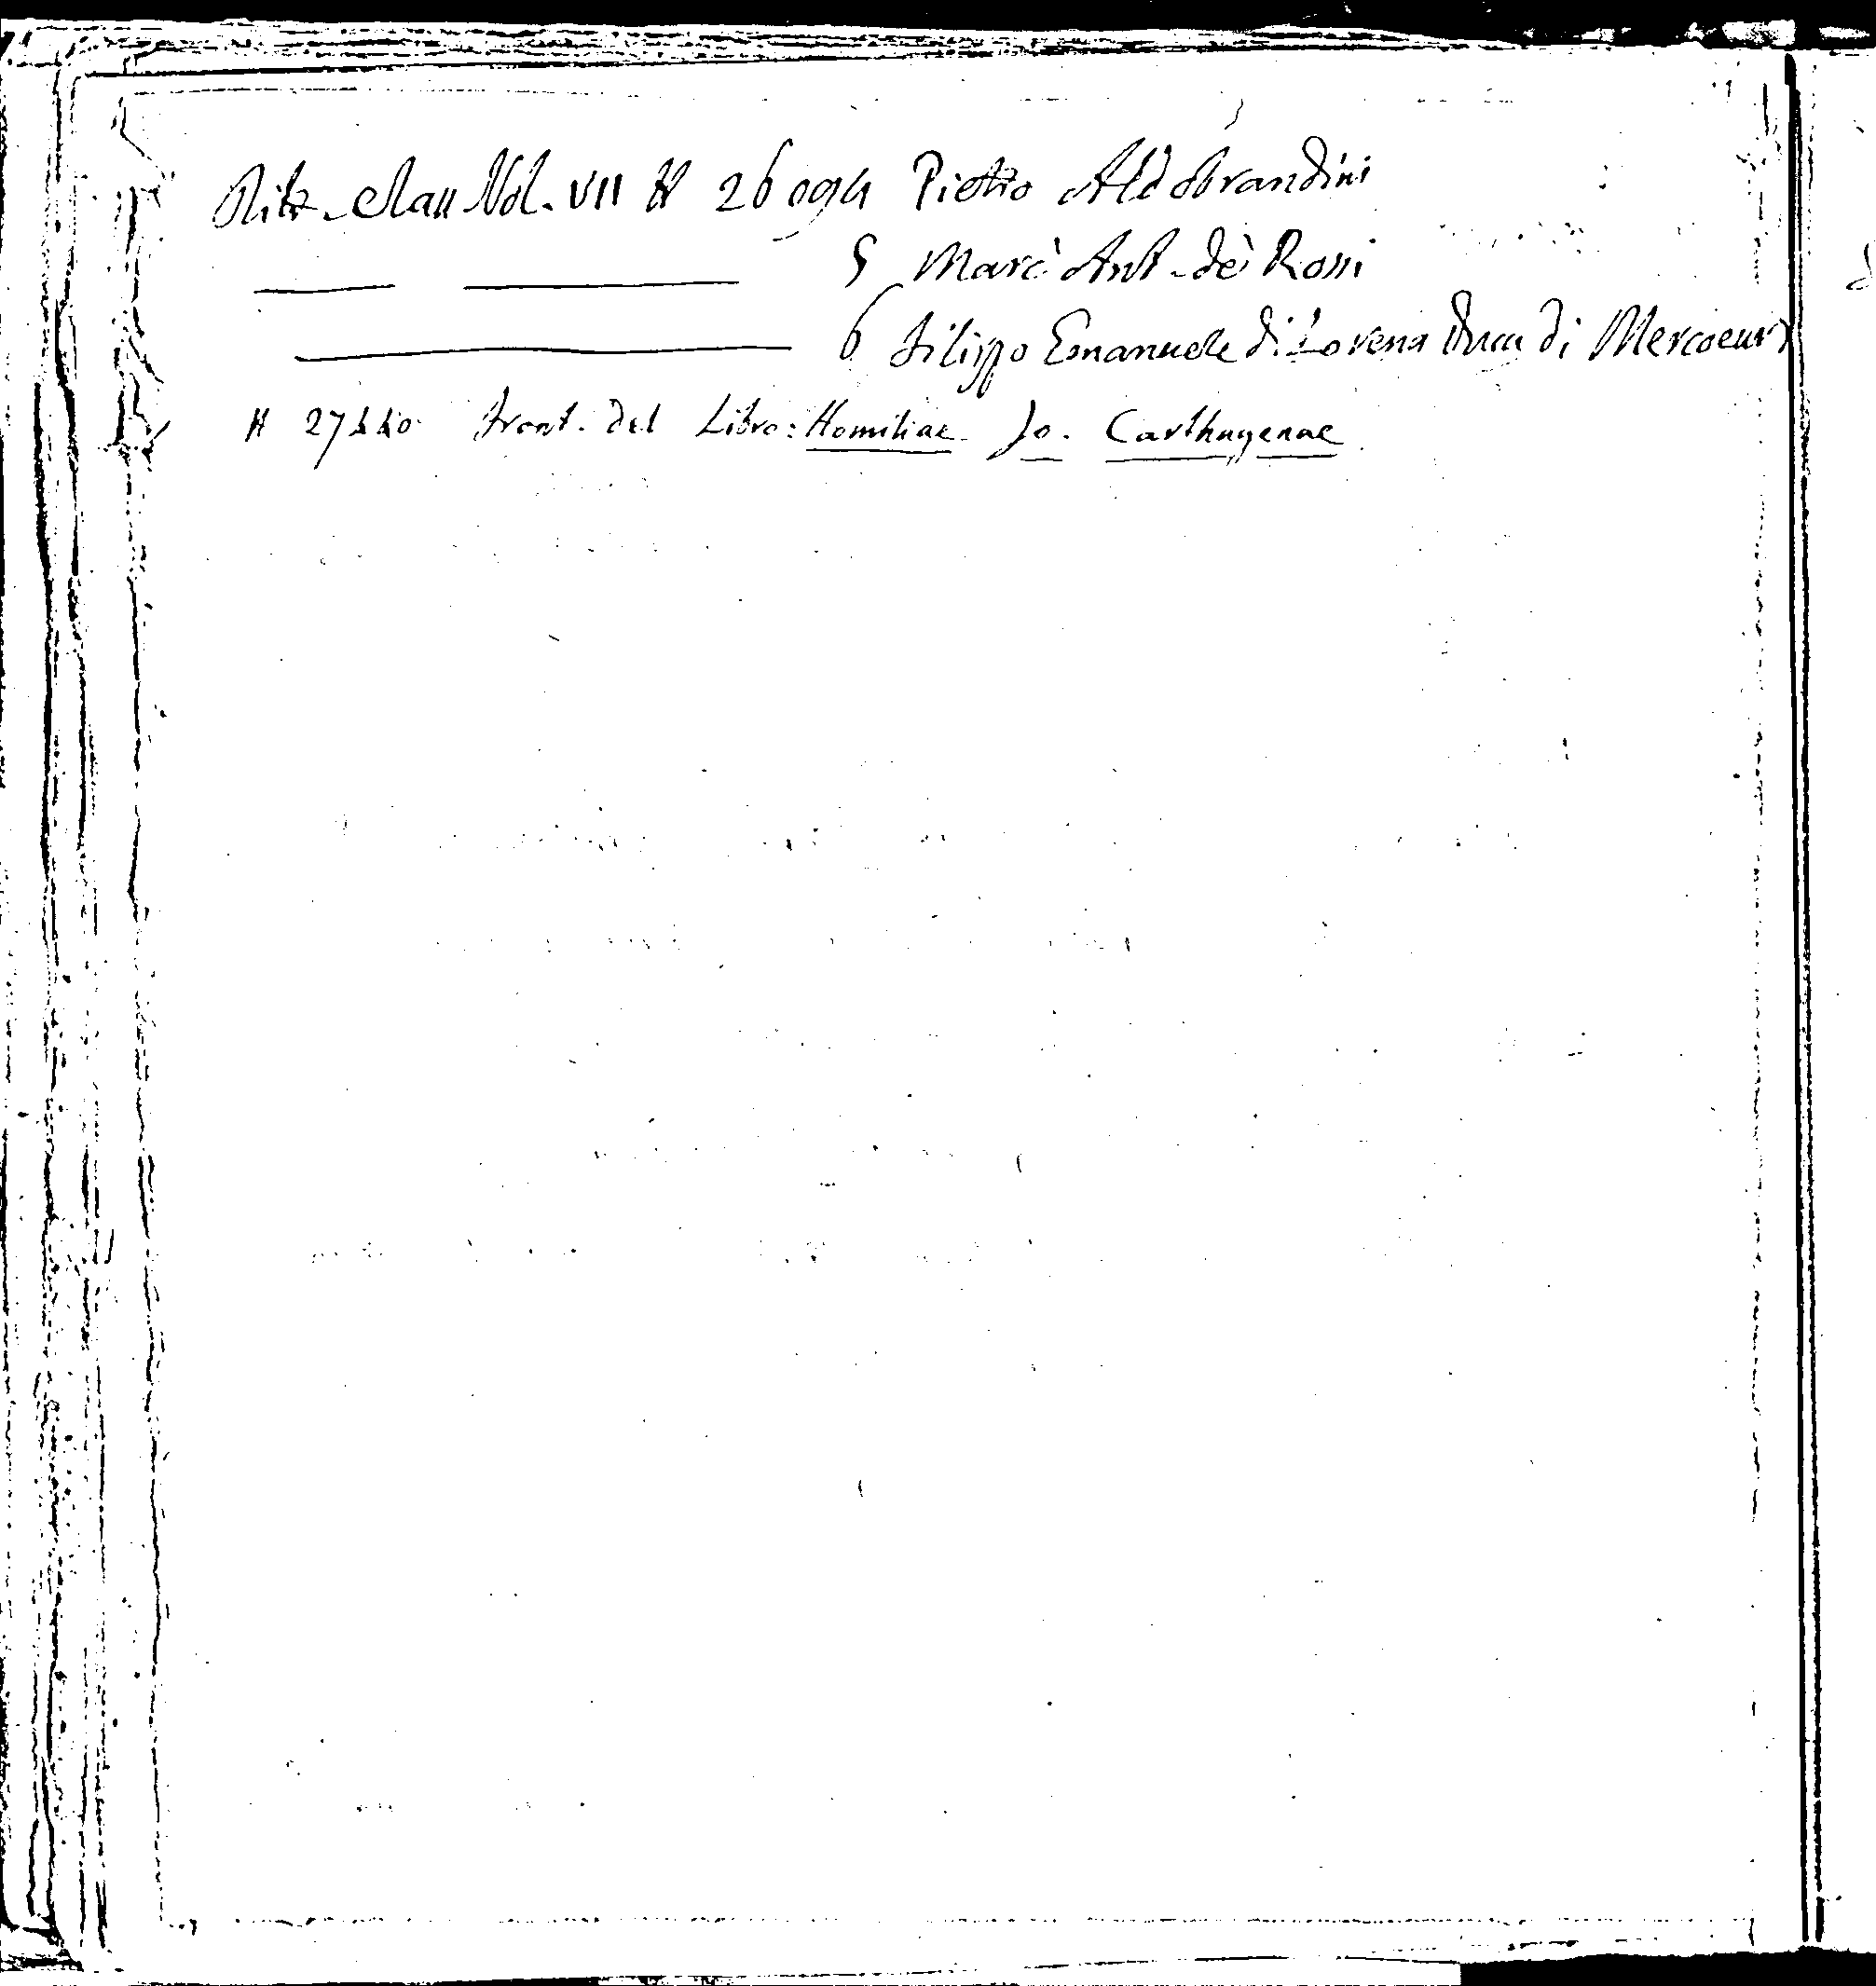 Ritr. Class Vol. VII N 26094 Pietro Aldobrandini
5 Marc' Ant. de' Rossi
6 Filippo Emanuele di Lorena Duca di Mercoeur
N 27440 Front. del Libro: Homiliae Jo. Carthagenae